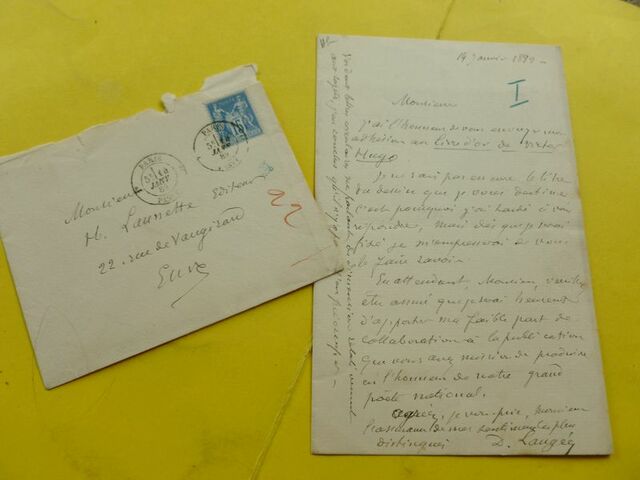 Monsieur
H. Launette Editeur
22, rue de Vaugirard
E.V.
22
PARIS
JANV
PARIS
JANV
14 Janvier 1882 -
I
Monsieur
J'ai l'honneur de vous envoyer mon
adhésion au Livre d'or de Victor
Hugo
Je ne sais pas encore le titre
du dessin que je vous destine
c'est pourquoi j'ai tardé à vous
répondre, mais dès que je serai
fixé je m'empresserai de vous
le faire savoir.
En attendant, Monsieur, veuillez
être assuré que je serai heureux
d'apporter ma faible part de
collaboration à la publication
que vous avez mission de produire
en l'honneur de notre grand
poète national.
Agréez, je vous prie, Monsieur
l'assurance de mes sentiments les plus
distingués
D. Laugée